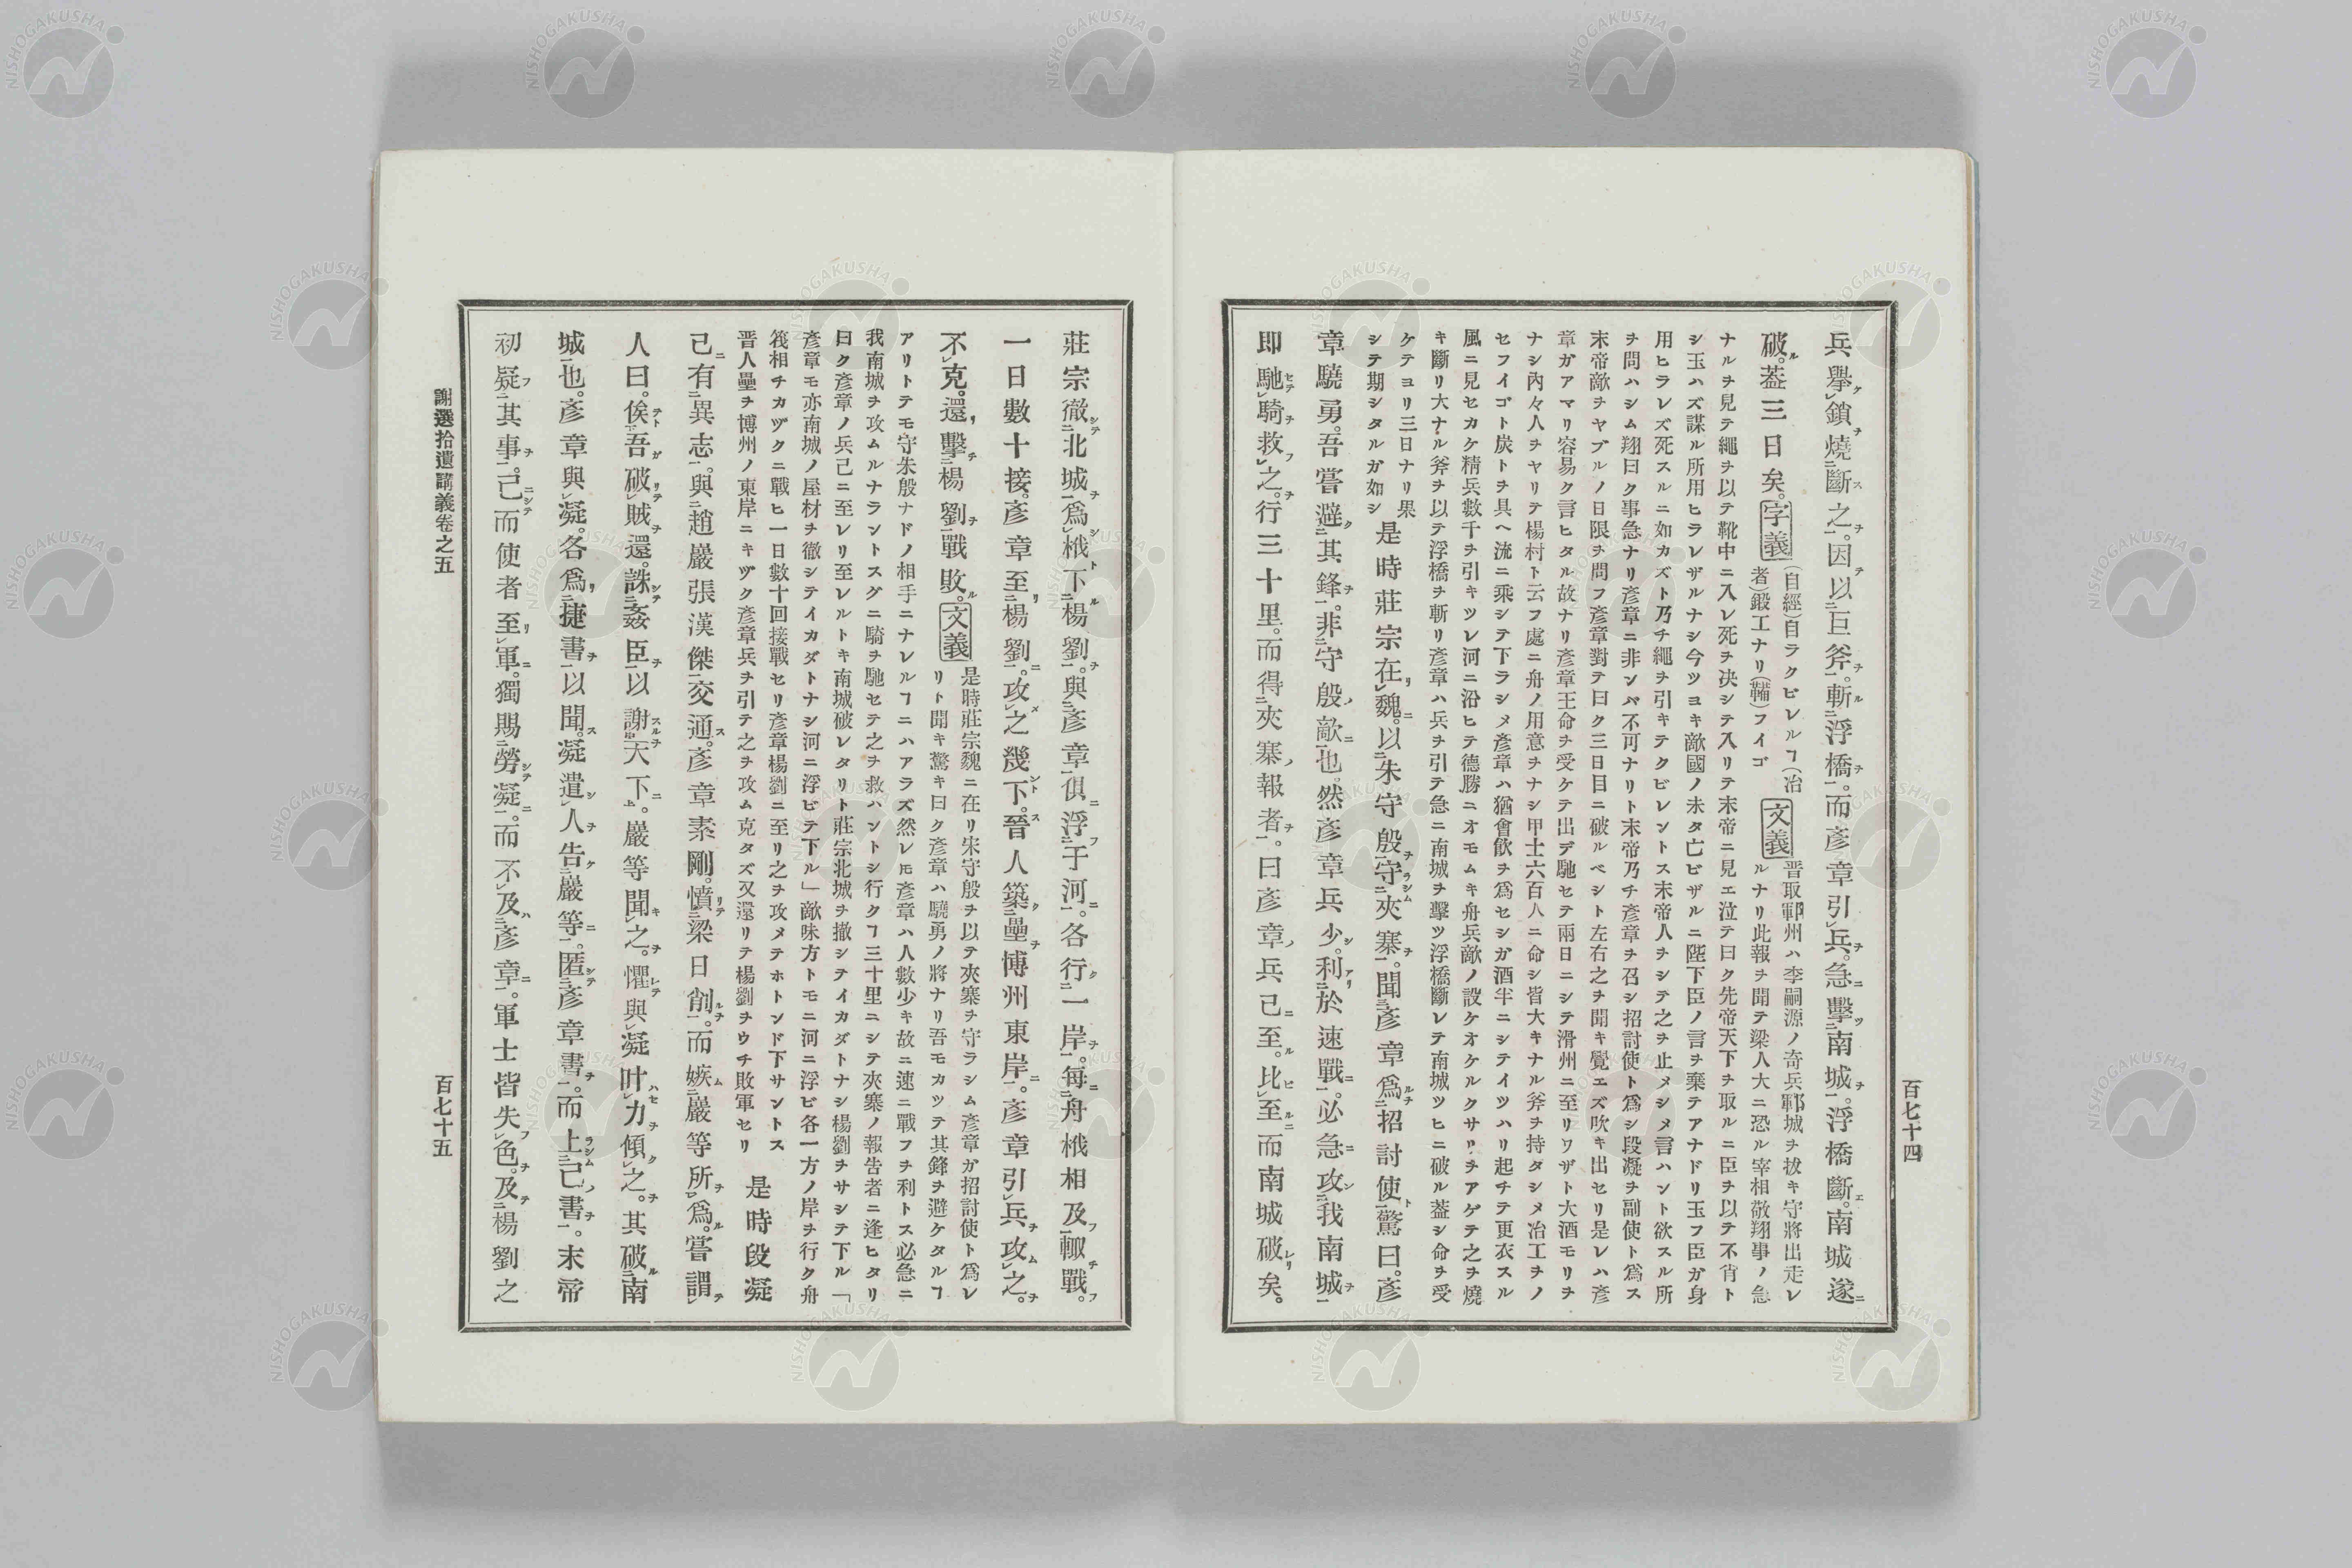 百七十四
兵擧鎖燒斷之。因以巨斧。斬浮橋。而彥章引兵。急擊南城。浮橋斷。南城遂
破。葢三日矣。
字義
(自經)自ラクビレルヿ(冶
者)鍛工ナリ(鞴)フイゴ
文義
晋取鄆州ハ李嗣源ノ奇兵鄆城ヲ拔キ守將出走レ
ルナリ此報ヲ聞テ梁人大ニ恐ル宰相敬翔事ノ急
ナルヲ見テ繩ヲ以テ靴中ニ入レ死ヲ決シテ入リテ末帝ニ見エ泣テ曰ク先帝天下ヲ取ルニ臣ヲ以テ不肖ト
シ玉ハズ謀ル所用ヒラレザルナシ今ツヨキ敵國ノ未タ亡ビザルニ陛下臣ノ言ヲ棄テアナドリ玉フ臣ガ身
用ヒラレズ死スルニ如カズト乃チ繩ヲ引キテクビレントス末帝人ヲシテ之ヲ止メシメ言ハント欲スル所
ヲ問ハシム翔曰ク事急ナリ彥章ニ非ンバ不可ナリト末帝乃チ彥章ヲ召シ招討使ト爲シ段凝ヲ副使ト爲ス
末帝敵ヲヤブルノ日限ヲ問フ彥章對テ曰ク三日目ニ破ルベシト左右之ヲ聞キ覺エズ吹キ出セリ是レハ彥
章ガアマリ容易ク言ヒタル故ナリ彥章王命ヲ受ケテ出デ馳セテ兩日ニシテ滑州ニ至リワザト大酒モリヲ
ナシ內々人ヲヤリテ楊村ト云フ處ニ舟ノ用意ヲナシ甲士六百人ニ命シ皆大キナル斧ヲ持タシメ冶工ヲノ
セフイゴト炭トヲ具ヘ流ニ乘シテ下ラシメ彥章ハ猶會飮ヲ爲セシガ酒半ニシテイツハリ起チテ更衣スル
風ニ見セカケ精兵數千ヲ引キツレ河ニ沿ヒテ德勝ニオモムキ舟兵敵ノ設ケオケルクサリヲアゲテ之ヲ燒
キ斷リ大ナル斧ヲ以テ浮橋ヲ斬リ彥章ハ兵ヲ引テ急ニ南城ヲ擊ツ浮橋斷レテ南城ツヒニ破ル葢シ命ヲ受
ケテヨリ三日ナリ果
シテ期シタルガ如シ
是時莊宗在魏。以朱守殷守夾寨。聞彥章爲招討使驚曰。彥
章驍勇。吾嘗避其鋒。非守殷敵也。然彥章兵少。利於速戰。必急攻我南城
卽馳騎救之。行三十里。而得夾寨報者。曰彥章兵已至。比至而南城破矣。
莊宗徹北城爲栰下楊劉。與彥章俱浮于河。各行一岸。每舟栰相及輙戰。
一日數十接。彥章至楊劉。攻之幾下。晉人築壘博州東岸。彥章引兵攻之。
不克。還擊楊劉戰敗。
文義
是時莊宗魏ニ在リ朱守殷ヲ以テ夾寨ヲ守ラシム彥章ガ招討使ト爲レ
リト聞キ驚キ曰ク彥章ハ驍勇ノ將ナリ吾モカツテ其鋒ヲ避ケタルヿ
アリトテモ守朱殷ナドノ相手ニナレルヿニハアラズ然レㇳモ彥章ハ人數少キ故ニ速ニ戰フヲ利トス必急ニ
我南城ヲ攻ムルナラントスグニ騎ヲ馳セテ之ヲ救ハントシ行クヿ三十里ニシテ夾寨ノ報告者ニ逢ヒタリ
曰ク彥章ノ兵已ニ至レリ至レルトキ南城破レタリト莊宗北城ヲ撤シテイカダトナシ楊劉ヲサシテ下ル「
彥章モ亦南城ノ屋材ヲ徹シテイカダトナシ河ニ浮ビテ下ル」敵味方トモニ河ニ浮ビ各一方ノ岸ヲ行ク舟
筏相チカヅクニ戰ヒ一日數十回接戰セリ彥章楊劉ニ至リ之ヲ攻メテホトンド下サントス
晋人壘ヲ博州ノ東岸ニキヅク彥章兵ヲ引テ之ヲ攻ム克タズ又還リテ楊劉ヲウチ敗軍セリ
是時段凝
已有異志。與趙巖張漢傑交通。彥章素剛。憤梁日削。而嫉巖等所爲。嘗謂
人曰。俟吾破賊還。誅姦臣以謝天下。巖等聞之。懼與凝叶力傾之。其破南
城也。彥章與凝。各爲捷書以聞。凝遣人告巖等。匿彥章書。而上己書。末帝
初疑其事。已而使者至軍。獨賜勞凝。而不及彥章。軍士皆失色。及楊劉之
謝選拾遺講義卷之五
百七十五